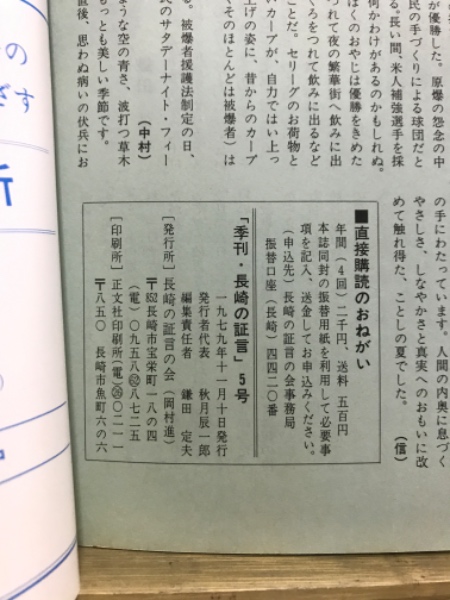 が優勝した。原爆の怨念の中
民の手づくりによる球団だと
る。長い間、米人補強選手を採
何かわけがあるのかもしれぬ。
ぼくのおやじは優勝をきめた
つれて夜の繁華街へ飲みに出
くろをつれて飲みに出るなど
ことだ。セリーグのお荷物と
いカープが、自力ではい上っ
上げの姿に、昔からのカープ
くそのほとんどは被爆者）は
る。被爆者援護法制定の日、
民のサタデーナイト・フィー
（中村）
ような空の青さ、波打つ草木
もっとも美しい季節です。
直後、思わぬ病いの伏兵にお
の手にわたっています。人間の内奥に息づく
やさしさ、しなやかさと真実へのおもいに改
めて触れ得た、ことしの夏でした。
（信）
■直接購読のおねがい
年間（4回）二千円、送料 五百円
本誌同封の振替用紙を利用して必要事
項を記入、送金してお申込みください。
（申込先）長崎の証言の会事務局
振替口座（長崎）四四二〇番
「季刊・長崎の証言」5号
一九七九年十一月十日発行
発行者代表 秋月辰一郎
編集責任者 鎌田定夫
〔発行所〕長崎の証言の会（岡村進）
〒852長崎市宝栄町一八の四
（電）〇九五八62八七二五
〔印刷所〕正文社印刷所（電）26〇二一一
〒八五〇 長崎市魚町六の六